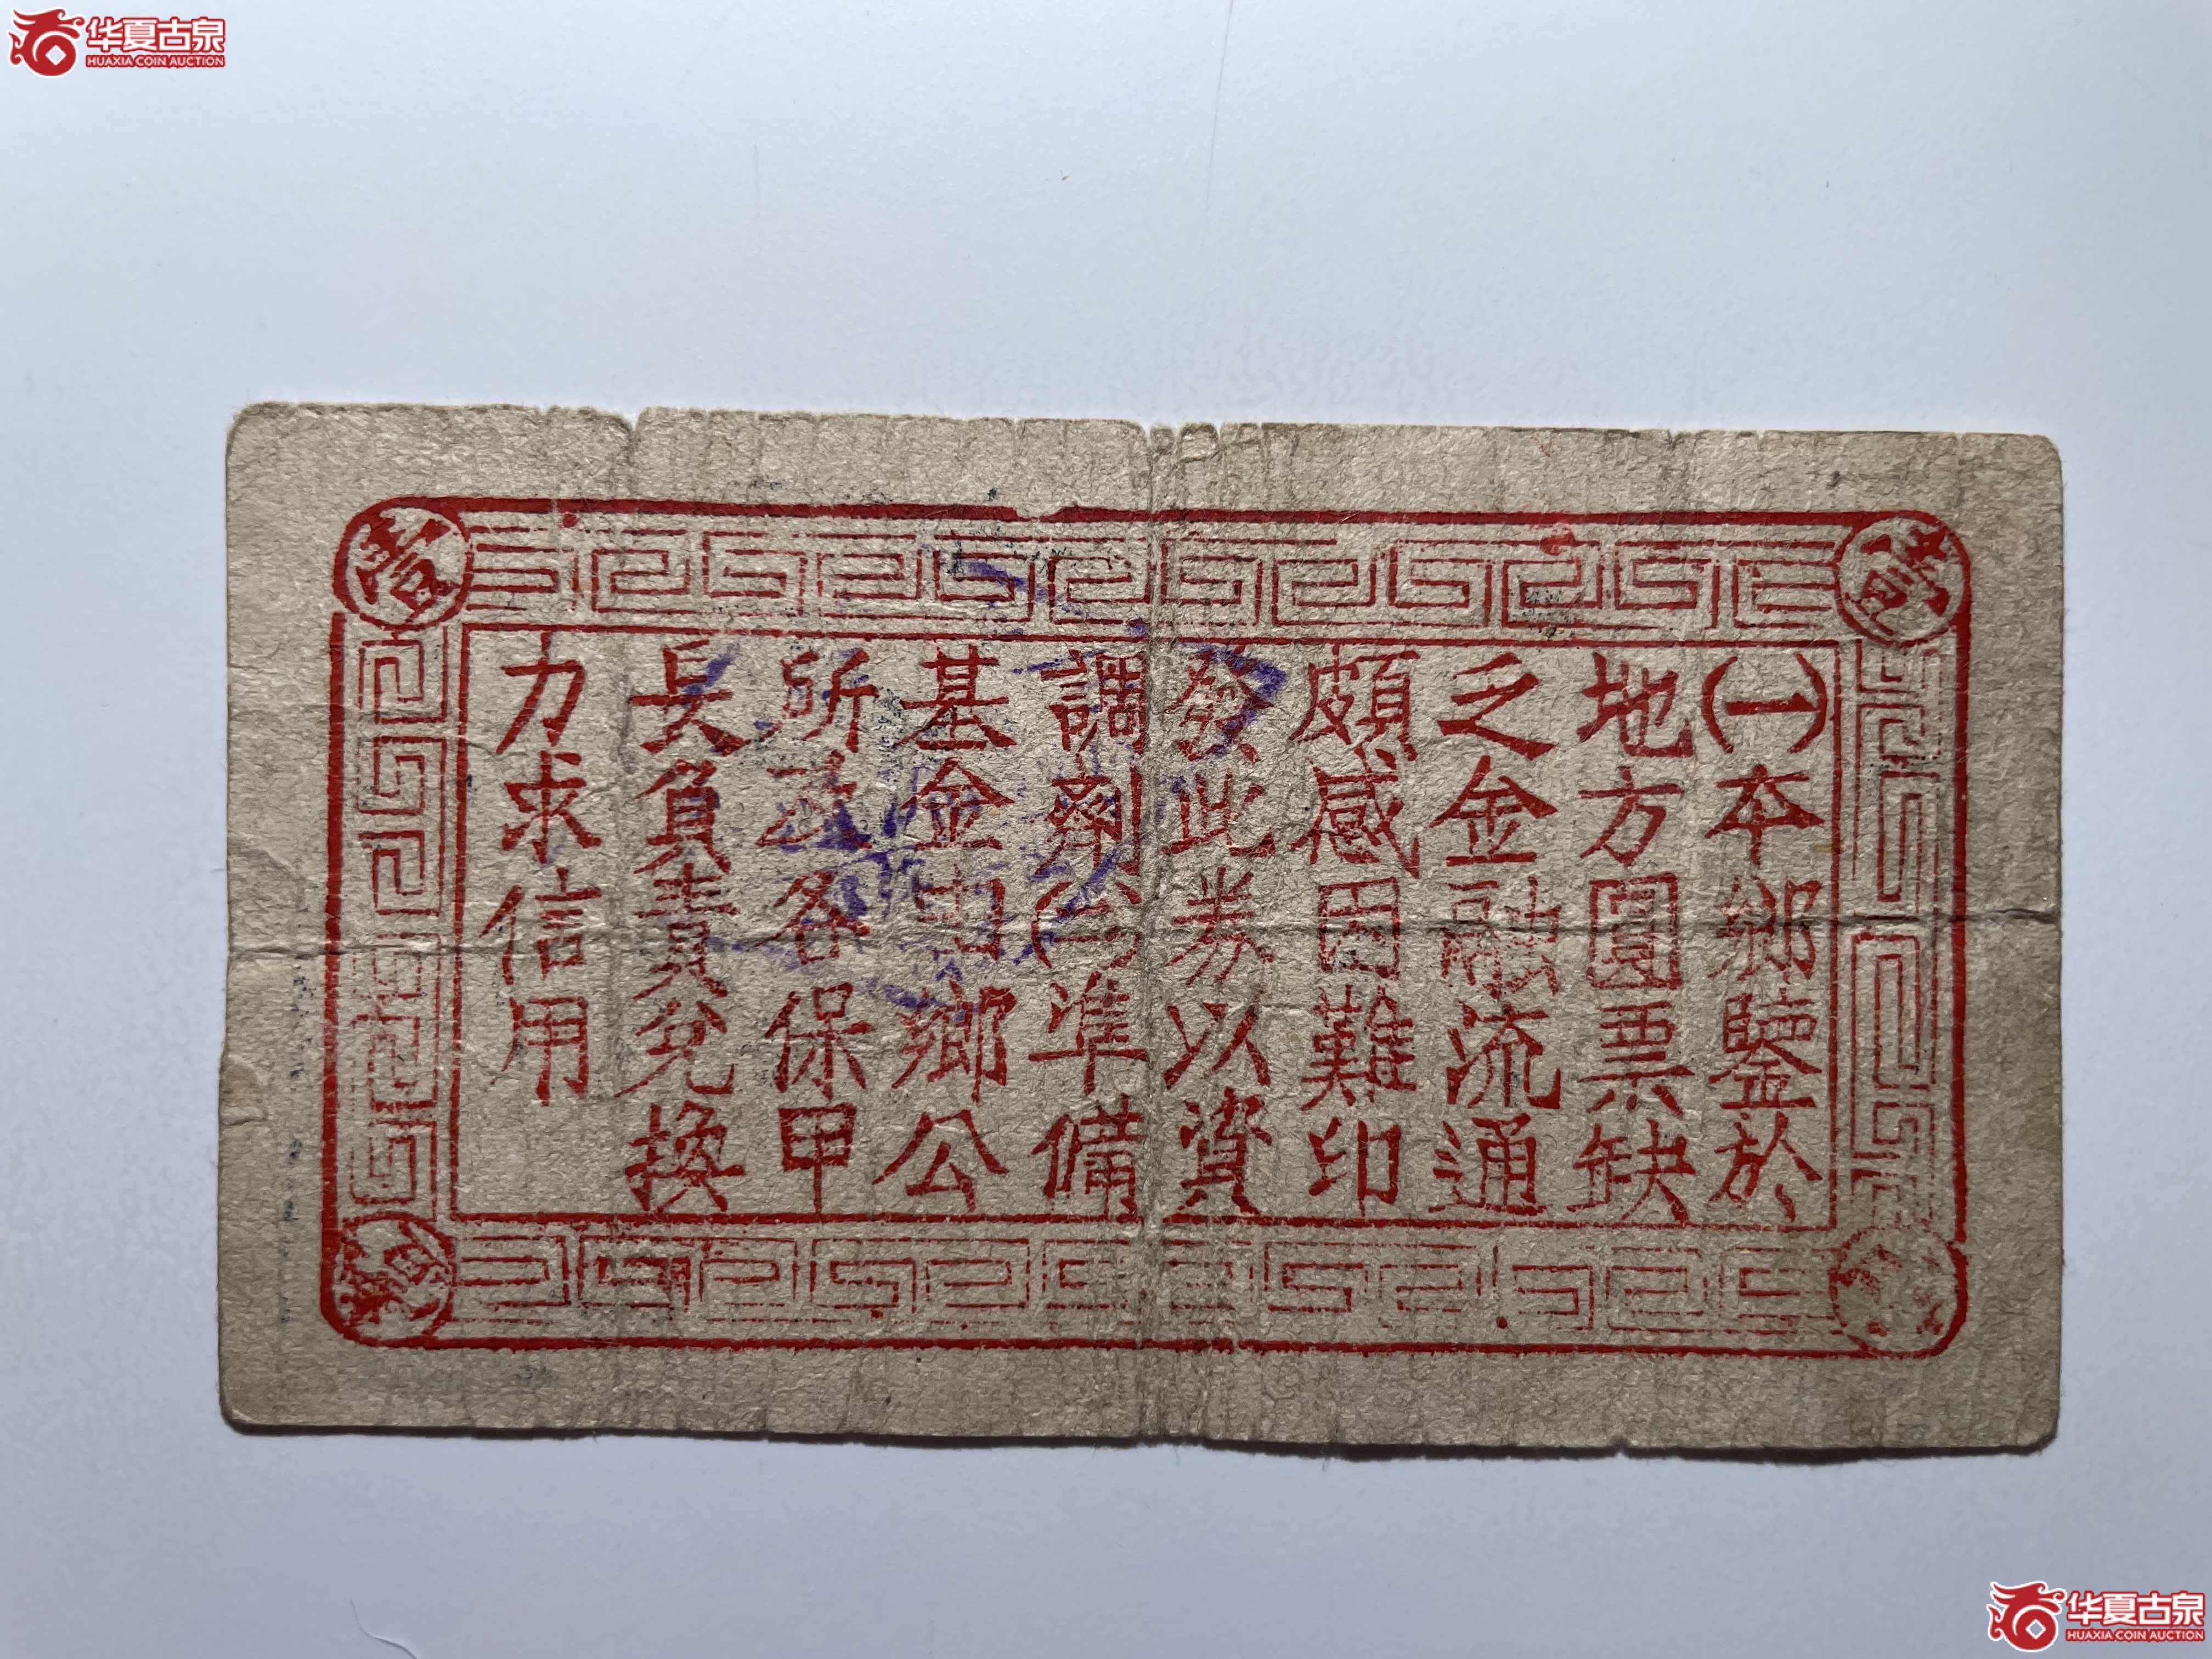 华夏古泉
HUAXIA COIN AUCTION
壹
壹
(一)本鄉鑒於
地方圓票缺
之金融流通
頗感困難印
發此券以資
調劑(二)準備
基金由鄉公
所及各保甲
長負責兌換
力求信用
华夏古泉
HUAXIA COIN AUCTION